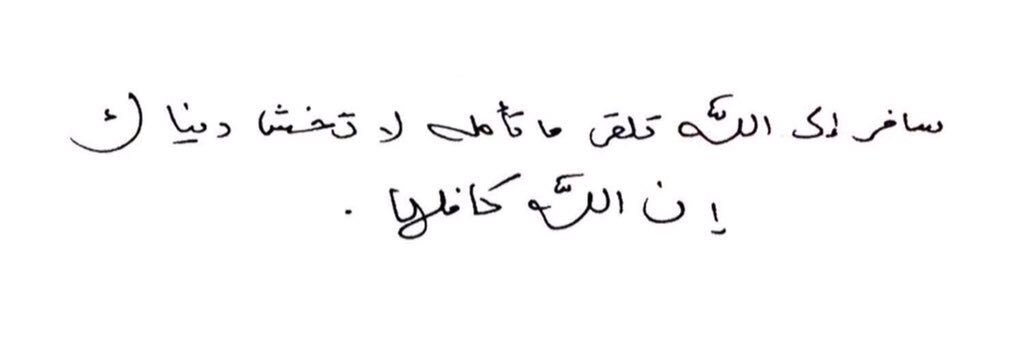 سافر إلى اللّه تلقى ما تأمله لا تخشا دنياك
إن اللّه كافلها .